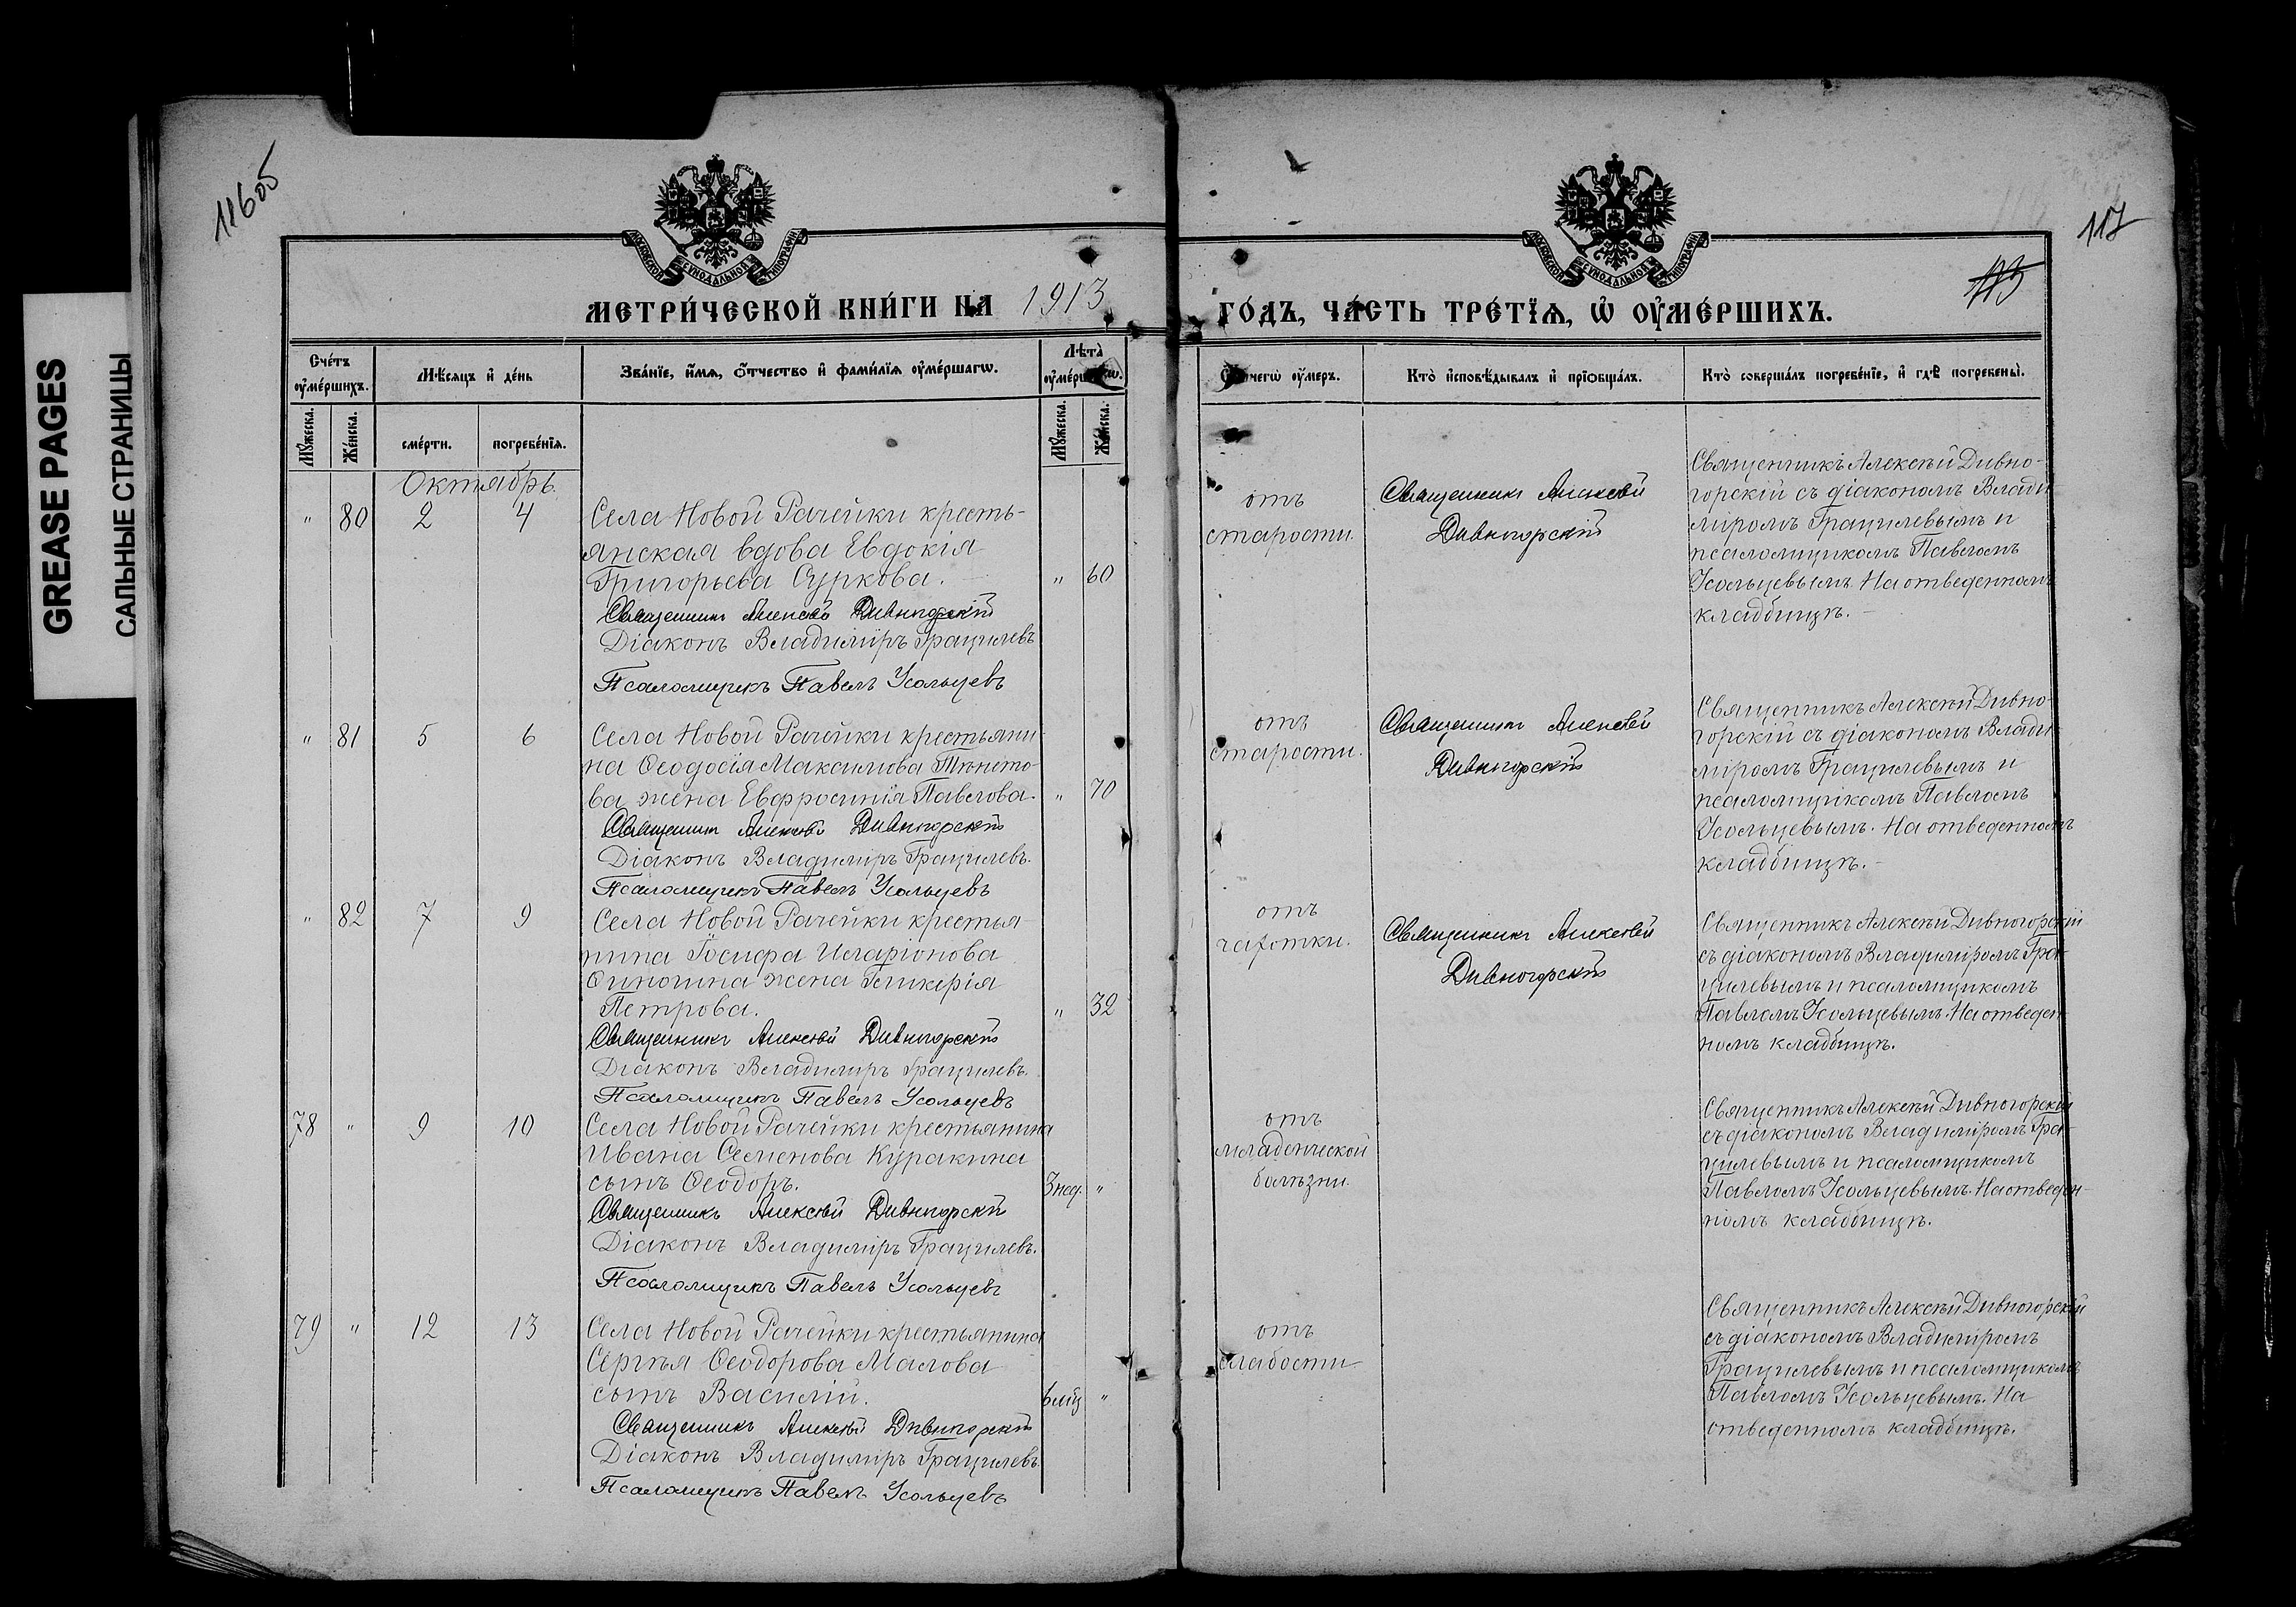 GREASE PAGES
САЛЬНЫЕ СТРАНИЦЫ
116об
117
113
МОСКОВСКОЙ СѴНОДАЛЬНОЙ ТИПОГРАФІИ
МОСКОВСКОЙ СѴНОДАЛЬНОЙ ТИПОГРАФІИ
МЕТРИ́ЧЕСКОЙ КНИ́ГИ НА 1913
ГО́ДЪ, ЧА́СТЬ ТРЕ́ТЇѦ, Ѡ҆ ОУ҆МЕ́РШИХЪ.
Сче́тъ оу҆ме́ршихъ.
Мѣ́сяцъ и҆ де́нь
Зва́нїе, и҆́мѧ, ѻ҆́тчество и҆ фами́лїѧ оу҆ме́ршагѡ.
Лѣ́та оу҆ме́ршагѡ.
Ѿ чегѡ̀ оу҆́меръ.
Кто̀ и҆сповѣ́дывалъ и҆ прїѡбща́лъ.
Кто̀ соверша́лъ погребе́нїе, и҆ гдѣ̀ погребены̀.
Мꙋ́жеска.
Же́нска.
сме́рти.
погребе́нїѧ.
Мꙋ́жеска.
Же́нска.
Октябрь.
" 80 2 4
Села Новой Рачейки кресть-
янская вдова Евдокія
Григорьева Суркова. " 60
Священникъ Алексѣй Дивногорскій
Діаконъ Владиміръ Грацилевъ
Псаломщикъ Павелъ Усольцевъ
отъ
старости.
Священникъ Алексѣй
Дивногорскій
Священникъ Алексѣй Дивно-
горскій съ діакономъ Влади
міромъ Грацилевымъ и
псаломщикомъ Павломъ
Усольцевымъ. На отведенномъ
кладбищѣ.-
" 81 5 6
Села Новой Рачейки крестьяни-
на Ѳеодосія Максимова
ва жена Евфросинія Павлова. " 70
Священникъ Алексѣй Дивногорскій
Діаконъ Владиміръ Грацилевъ.
Псаломщикъ Павелъ Усольцевъ
отъ
старости.
Священникъ Алексѣй
Дивногорскій
Священникъ Алексѣй Дивно-
горскій съ діакономъ Влади
міромъ Грацилевымъ и
псаломщикомъ Павломъ
Усольцевымъ. На отведенномъ
кладбищѣ.-
" 82 7 9
Села Новой Рачейки крестья-
нина Іосифа Иларіонова
жена Гликерія
Петрова. " 32
Священникъ Алексѣй Дивногорскій
Діаконъ Владиміръ Грацилевъ.
Псаломщикъ Павелъ Усольцевъ
отъ
чахотки.
Священникъ Алексѣй
Дивногорскій
Священникъ Алексѣй Дивногорскій
съ діакономъ Владиміромъ Гра-
цилевымъ и псаломщикомъ
Павломъ Усольцевымъ. На отведен-
номъ кладбищѣ.
78 " 9 10
Села Новой Рачейки крестьянина
Ивана Семенова Куракина
сынъ Ѳеодоръ. 3 нед. "
Священникъ Алексѣй Дивногорскій
Діаконъ Владиміръ Грацилевъ.
Псаломщикъ Павелъ Усольцевъ
отъ
младенческой
болѣзни.
Священникъ Алексѣй Дивногорскій
съ діакономъ Владиміромъ Гра-
цилевымъ и псаломщикомъ
Павломъ Усольцевымъ. На отведен-
номъ кладбищѣ.
79 " 12 13
Села Новой Рачейки крестьянина
Сергѣя Ѳеодорова Малова
сынъ Василій. 6 мѣц "
Священникъ Алексѣй Дивногорскій
Діаконъ Владиміръ Грацилевъ.
Псаломщикъ Павелъ Усольцевъ
отъ
слабости
Священникъ Алексѣй Дивногорскій
съ діакономъ Владиміромъ
Грацилевымъ и псаломщикомъ
Павломъ Усольцевымъ. На
отведенномъ кладбищѣ.